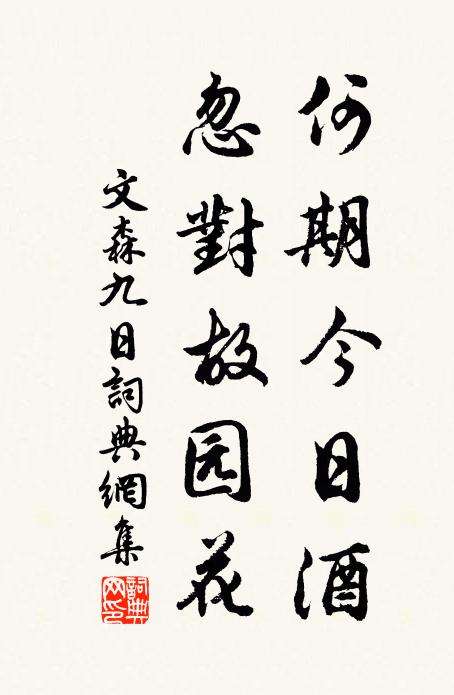 何期今日酒
忽對故园花
文森九日詞典網集
詞典网印